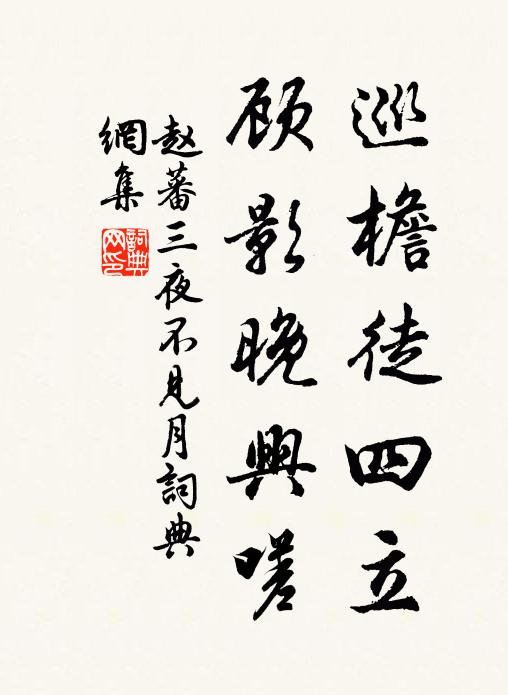 巡檐徒四立
顾影晚興嗟
赵蕃三夜不見月詞典
網集
詞典
网印